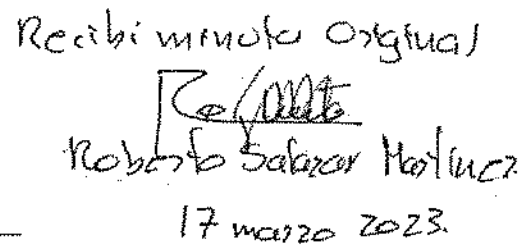 Recibi minuta Original
Roberto Salazar Martinez
17 marzo 2023.